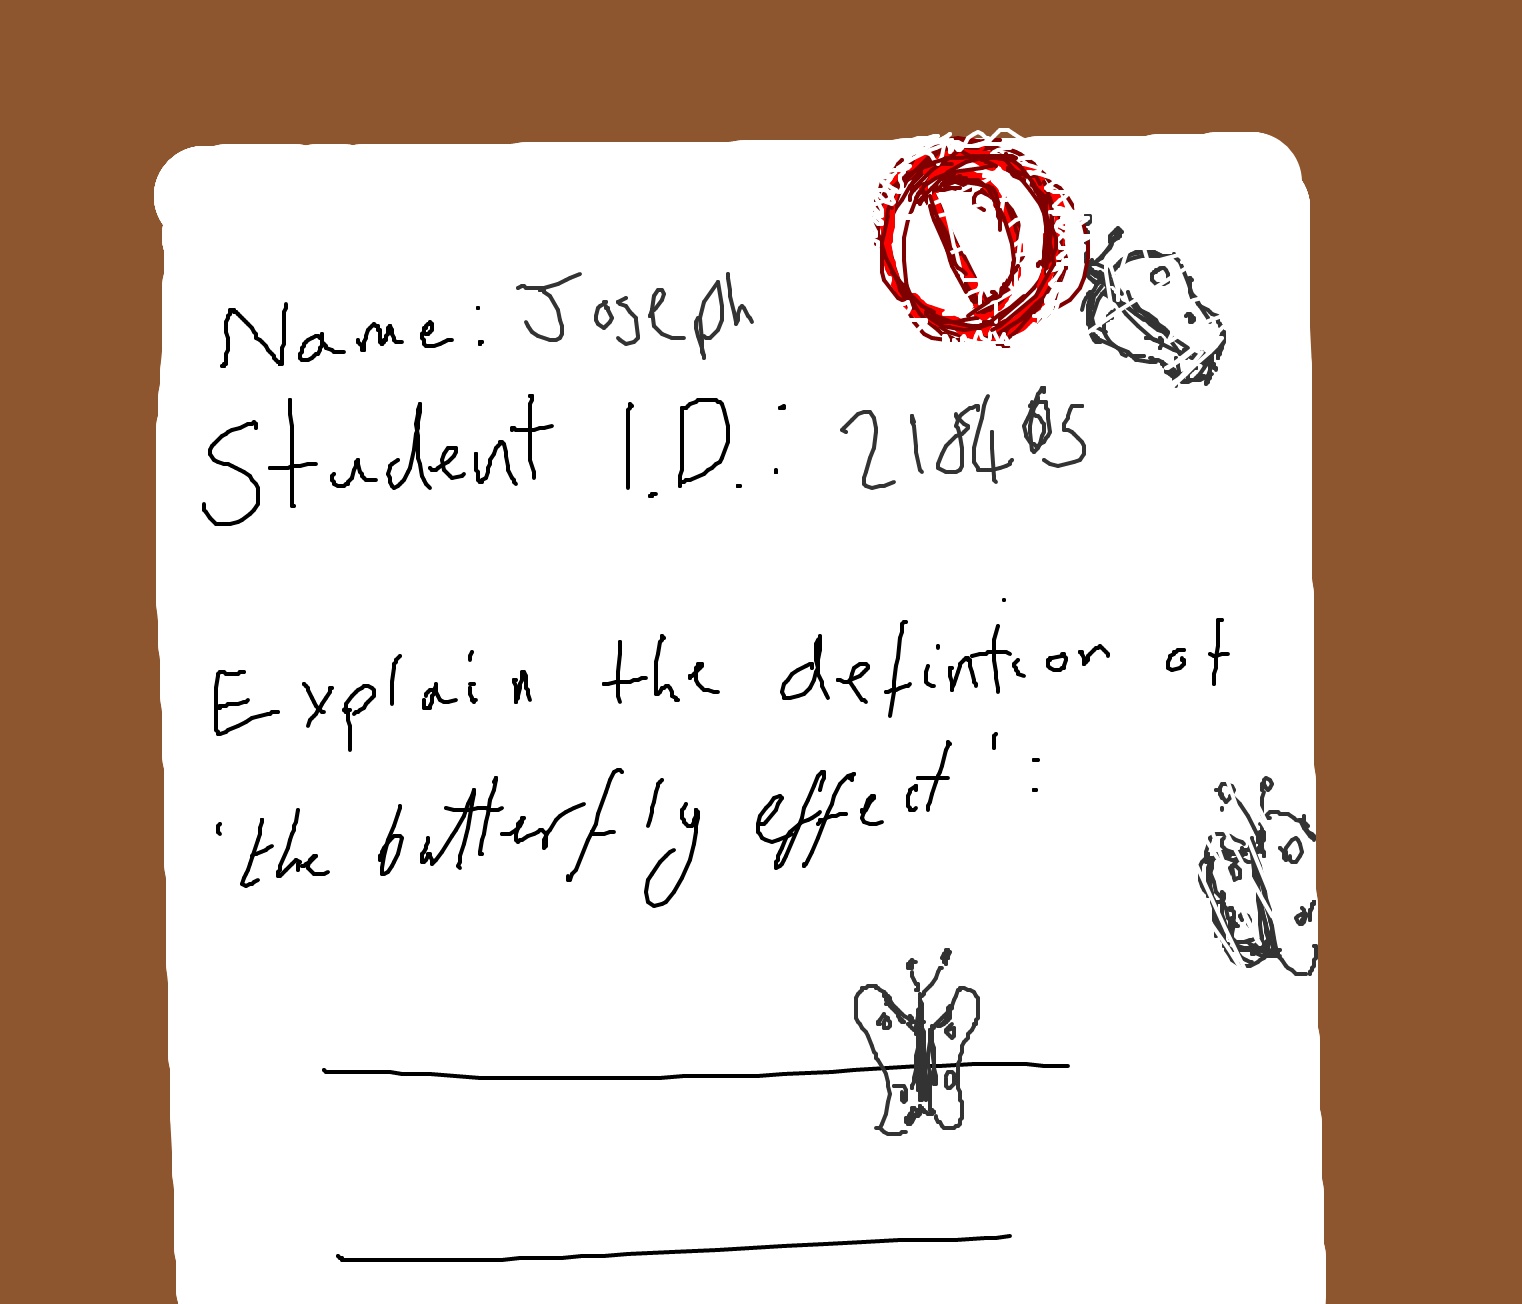 Name: Joseph
Student I.D.: 218405
Explain the defintion of
'the butterfly effect':